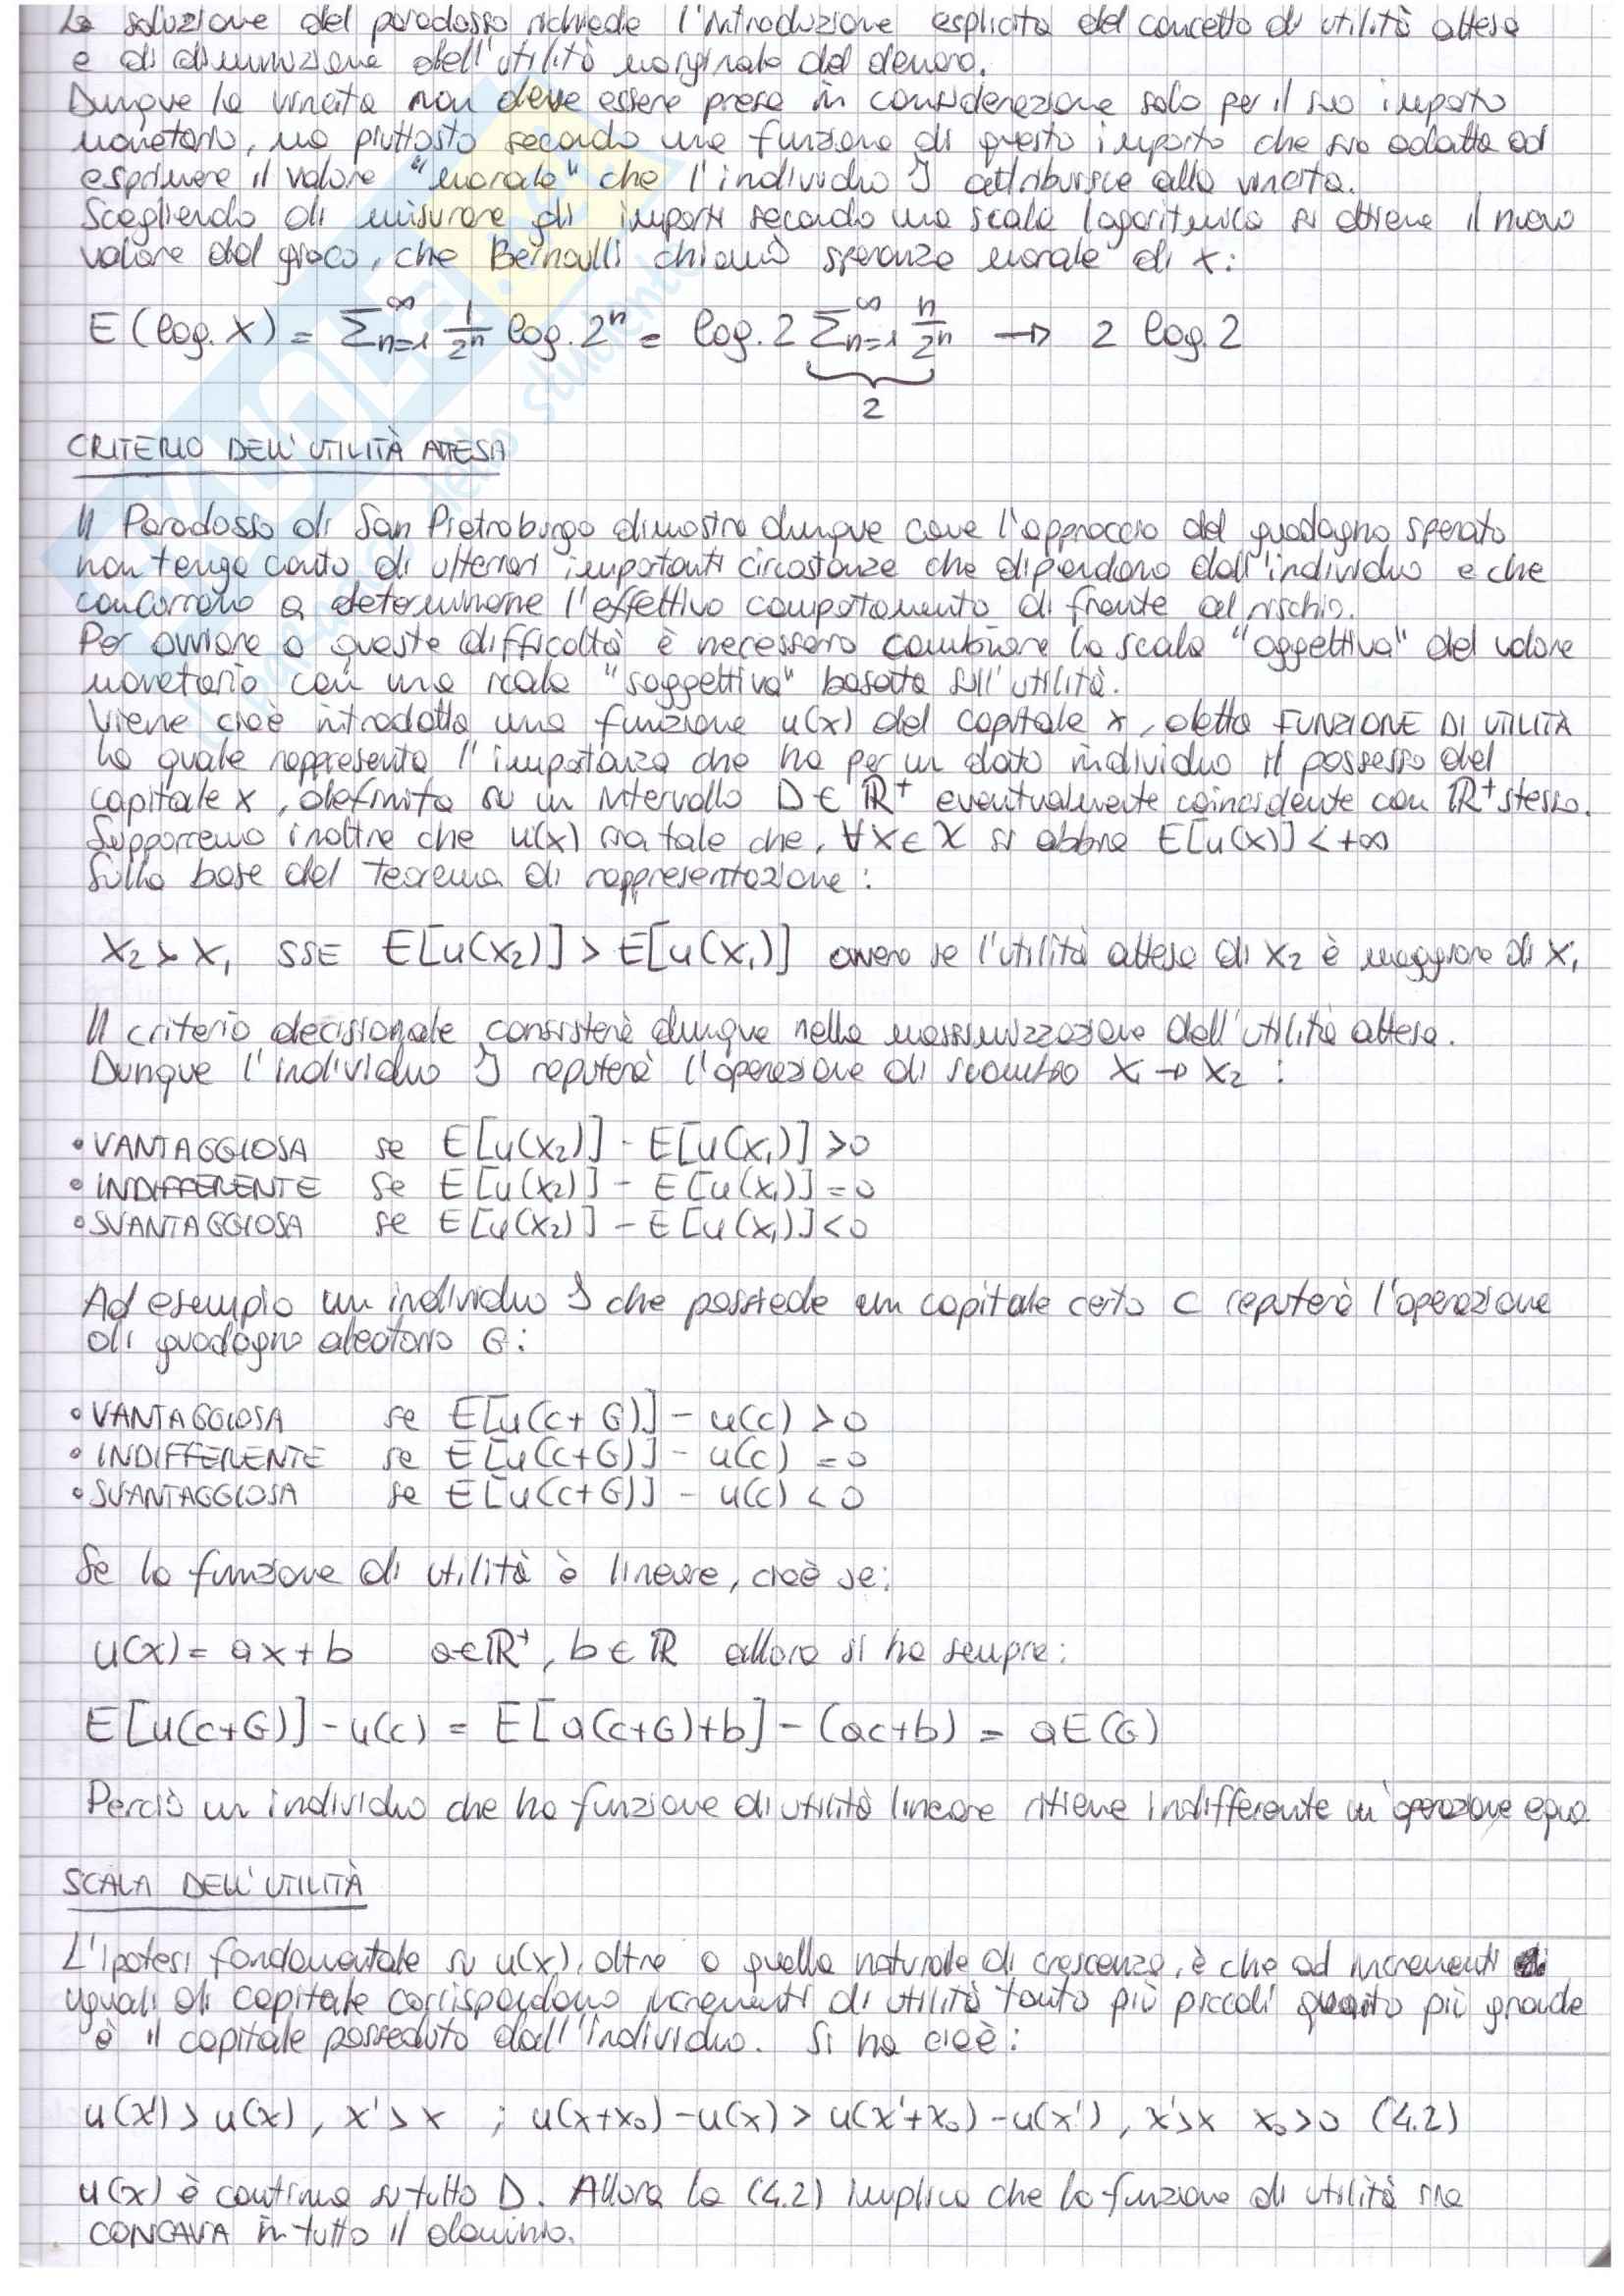 La soluzione del paradosso richiede l'introduzione esplicita del concetto di utilità attesa
e di diminuzione dell'utilità marginale del denaro.
Dunque la vincita non deve essere presa in considerazione solo per il suo importo
monetario, ma piuttosto secondo una funzione di questo importo che sia adatta ad
esprimere il valore "morale" che l'individuo I attribuisce alla vincita.
Scegliendo di misurare gli importi secondo una scala logaritmica si ottiene il nuovo
valore del gioco, che Bernoulli chiamò speranza morale di x:
E(log. X) = Σ_{n=1}^{∞} 1/2^n log. 2^n = log. 2 Σ_{n=1}^{∞} n/2^n → 2 log. 2
2
CRITERIO DELL'UTILITÀ ATTESA
Il Paradosso di San Pietroburgo dimostra dunque come l'approccio del guadagno sperato
non tenga conto di ulteriori importanti circostanze che dipendono dall'individuo e che
concorrono a determinare l'effettivo comportamento di fronte al rischio.
Per ovviare a queste difficoltà è necessario cambiare la scala "oggettiva" del valore
monetario con una scala "soggettiva" basata sull'utilità.
Viene cioè introdotta una funzione u(x) del capitale x, detta FUNZIONE DI UTILITÀ
la quale rappresenta l'importanza che ha per un dato individuo il possesso del
capitale x, definita su un intervallo D ∈ ℝ⁺ eventualmente coincidente con ℝ⁺ stesso.
Supporremo inoltre che u(x) sia tale che, ∀X ∈ X si abbia E[u(X)] < +∞
Sulla base del teorema di rappresentazione:
X₂ ≻ X₁ SSE E[u(X₂)] > E[u(X₁)] ovvero se l'utilità attesa di X₂ è maggiore di X₁
Il criterio decisionale consisterà dunque nella massimizzazione dell'utilità attesa.
Dunque l'individuo I reputerà l'operazione di scambio X₁ → X₂ :
• VANTAGGIOSA se E[u(X₂)] - E[u(X₁)] > 0
• INDIFFERENTE se E[u(X₂)] - E[u(X₁)] = 0
• SVANTAGGIOSA se E[u(X₂)] - E[u(X₁)] < 0
Ad esempio un individuo I che possiede un capitale certo C reputerà l'operazione
di guadagno aleatorio G:
• VANTAGGIOSA se E[u(C+G)] - u(c) > 0
• INDIFFERENTE se E[u(C+G)] - u(c) = 0
• SVANTAGGIOSA se E[u(C+G)] - u(c) < 0
Se la funzione di utilità è lineare, cioè se:
u(x) = ax + b a∈ℝ⁺, b∈ℝ allora si ha sempre:
E[u(c+G)] - u(c) = E[a(c+G)+b] - (ac+b) = aE(G)
Perciò un individuo che ha funzione di utilità lineare ritiene indifferente un'operazione equa
SCALA DELL'UTILITÀ
L'ipotesi fondamentale su u(x), oltre a quella naturale di crescenza, è che ad incrementi
uguali di capitale corrispondono incrementi di utilità tanto più piccoli quanto più grande
è il capitale posseduto dall'individuo. Si ha cioè:
u(x') > u(x), x' > x ; u(x+x₀) - u(x) > u(x'+x₀) - u(x'), x' > x x₀ > 0 (4.2)
u(x) è continua su tutto D. Allora la (4.2) implica che la funzione di utilità sia
CONCAVA in tutto il dominio.